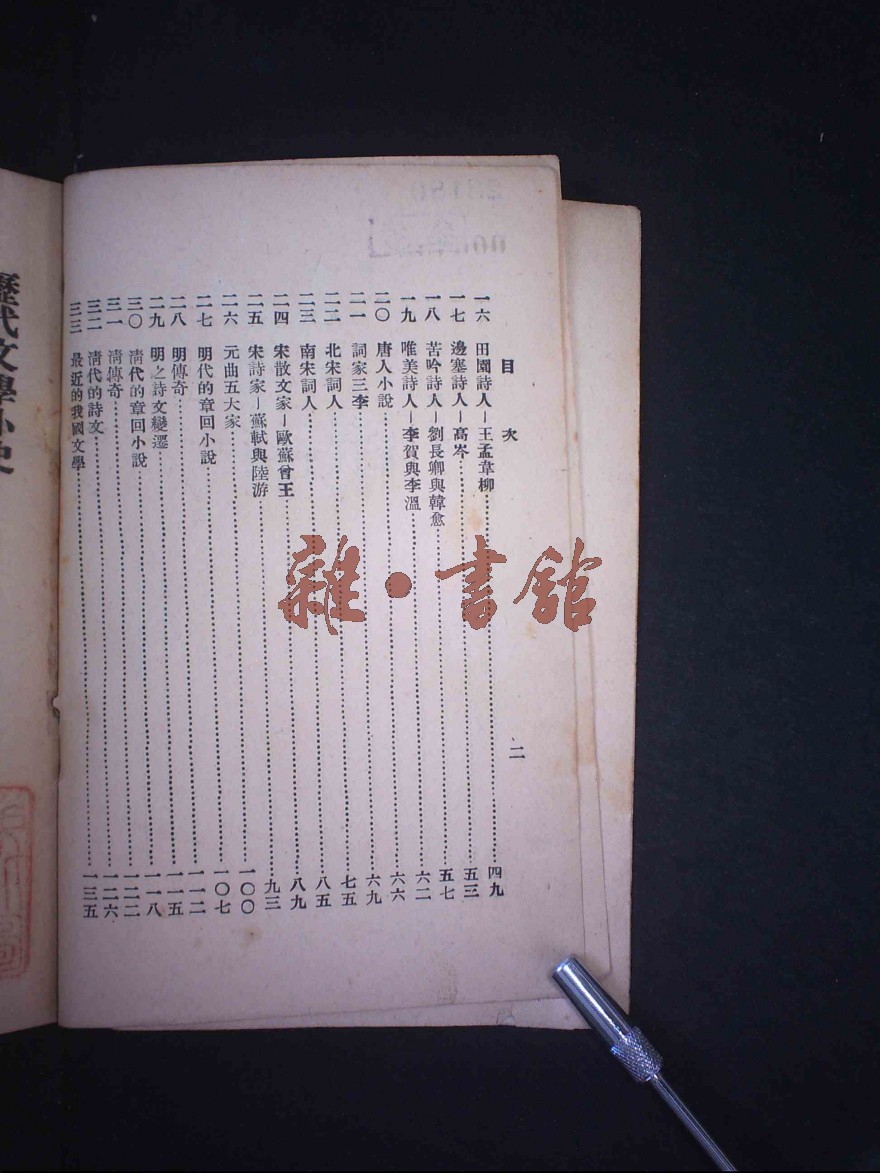 目次
二
一六 田園詩人—王孟韋柳……四九
一七 邊塞詩人—高岑……五三
一八 苦吟詩人—劉長卿與韓愈……五七
一九 唯美詩人—李賀與李溫……六二
二〇 唐人小說……六六
二一 詞家三李……六九
二二 北宋詞人……七五
二三 南宋詞人……八五
二四 宋散文家—歐蘇曾王……八九
二五 宋詩家—蘇軾與陸游……九三
二六 元曲五大家……一〇〇
二七 明代的章回小說……一〇七
二八 明傳奇……一一二
二九 明之詩文變遷……一一五
三〇 清代的章回小說……一一八
三一 清傳奇……一二二
三二 清代的詩文……一二六
三三 最近的我國文學……一三五
歷代文學小史
雜·書館